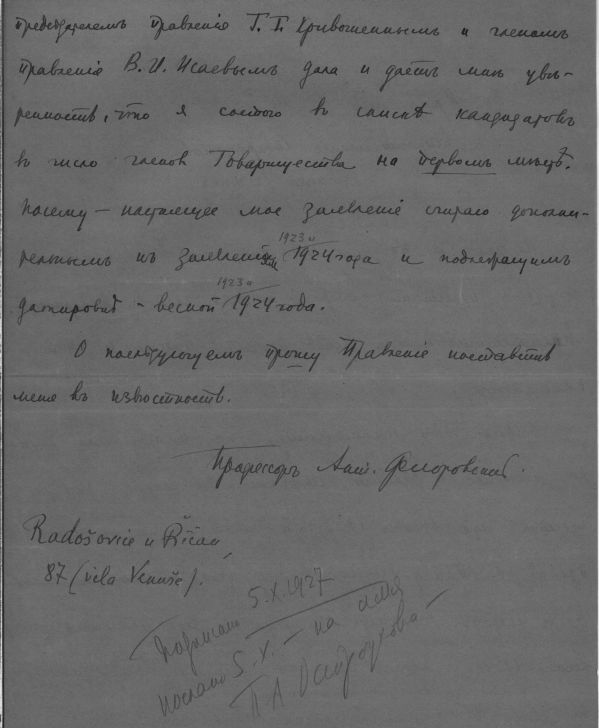 председателемъ Правленія Г. Г. Кривошеинымъ и членомъ
Правленія В. И. Исаевымъ дала и даетъ мнѣ увѣ-
ренность, что я состою въ спискѣ кандидатовъ
въ число членовъ Товарищества на первомъ мѣстѣ.
Посему — настоящее мое заявленіе считаю дополни-
тельнымъ къ заявленіямъ 1923 и 1924 года и подлежащимъ
датировкѣ — весной 1923 и 1924 года.
О послѣдующемъ прошу Правленіе поставить
меня въ извѣстность.
Профессоръ Ант. Флоровскій.
Radošovice u Říčan,
87 (vila Venuše).
5.X.1927
послано 5.X. — на имя
П. А. Остроухова —